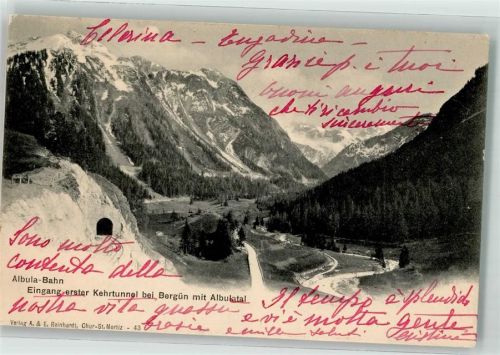 Celerina - Engadina -
Grazie p. i tuoi
buoni auguri
che ti ricambio
sinceramente
Sono molto
contenta della
Albula-Bahn
Eingang erster Kehrtunnel bei Bergün mit Albulatal
nostra vita quassù
Il tempo è splendido
e vi è molta gente
Grazie e mille saluti
Verlag A. & E. Reinhardt, Chur-St. Moritz - 43